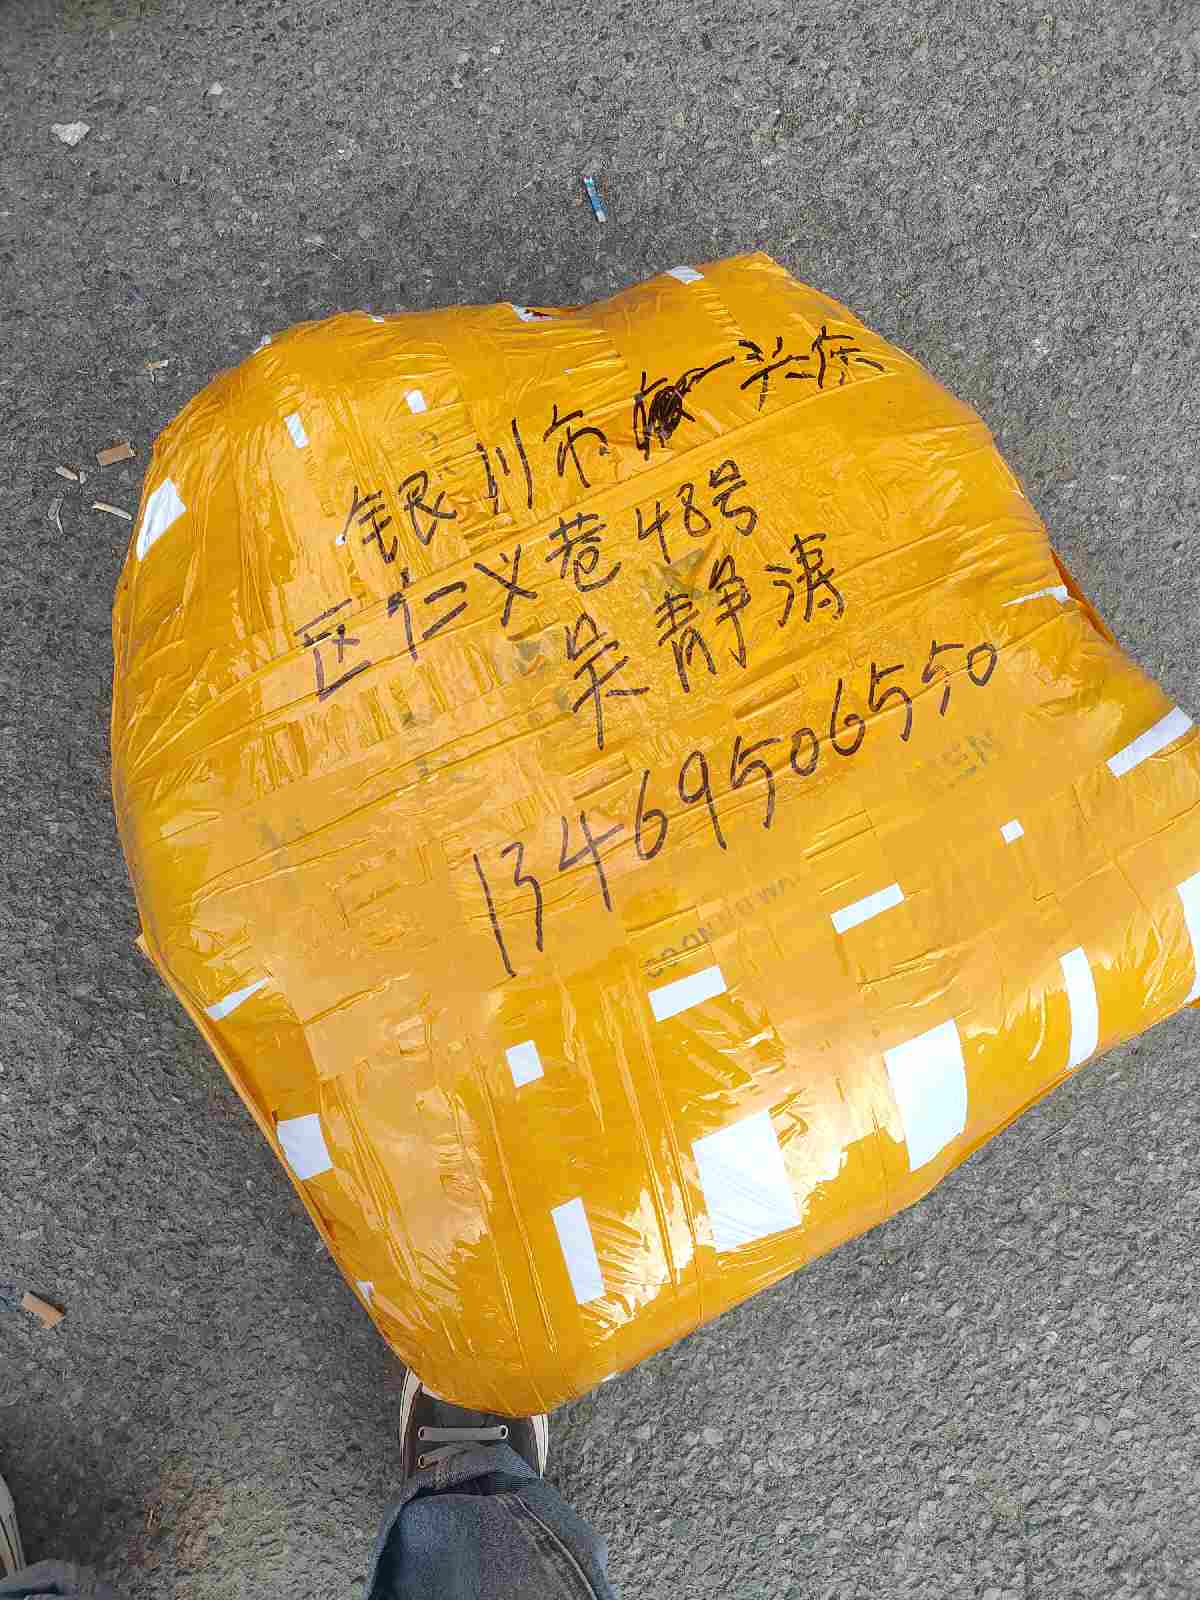 银川市 兴庆
区仁义巷48号
吴静涛
13469506550